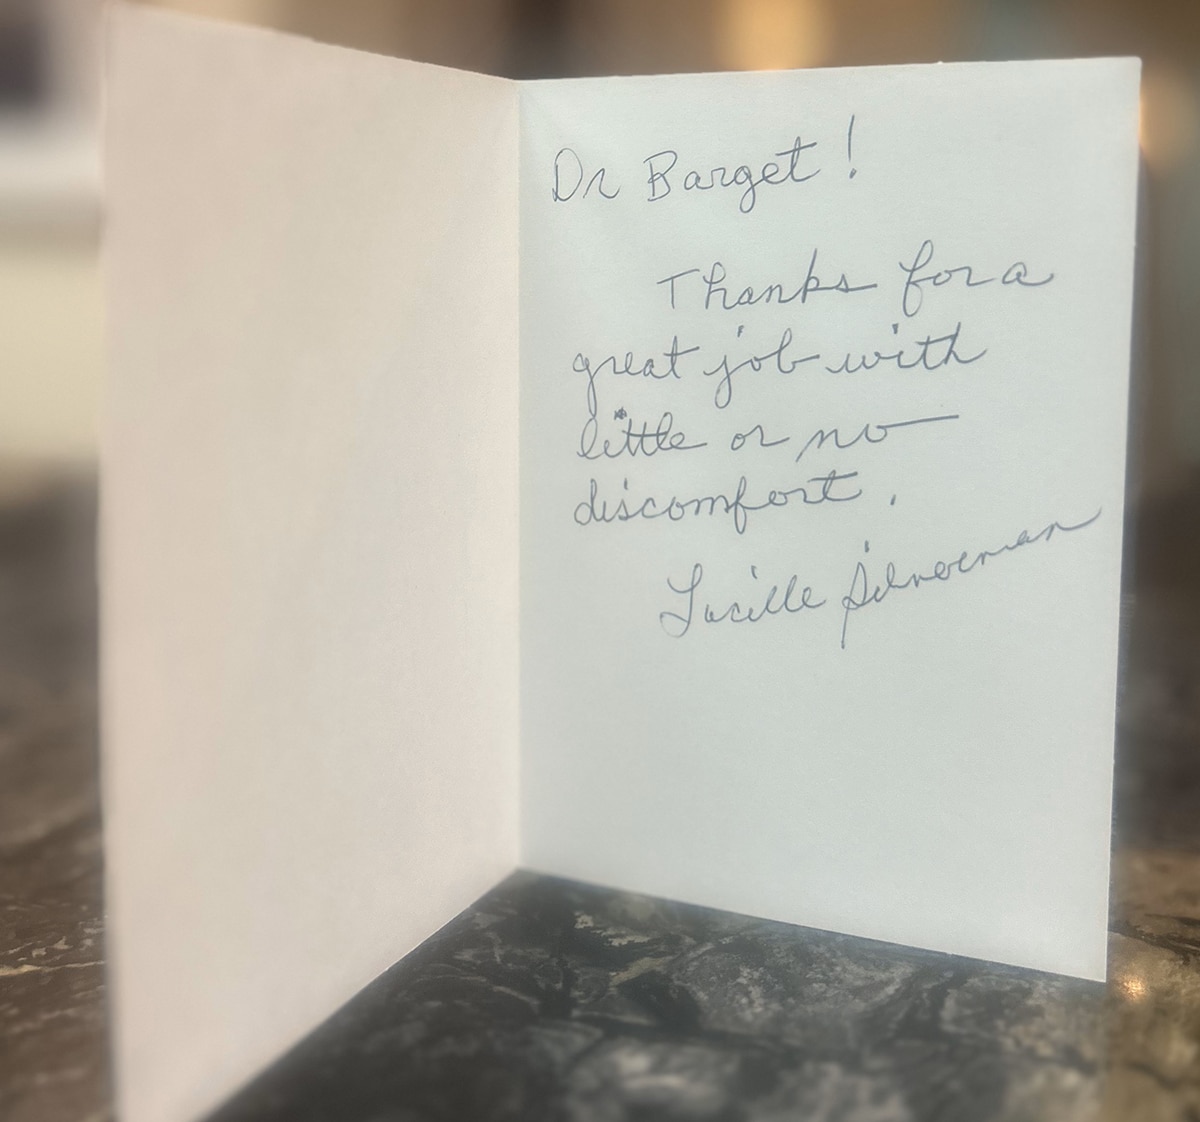 Dr Barget!
Thanks for a
great job with
little or no
discomfort.
Lucille Silverman